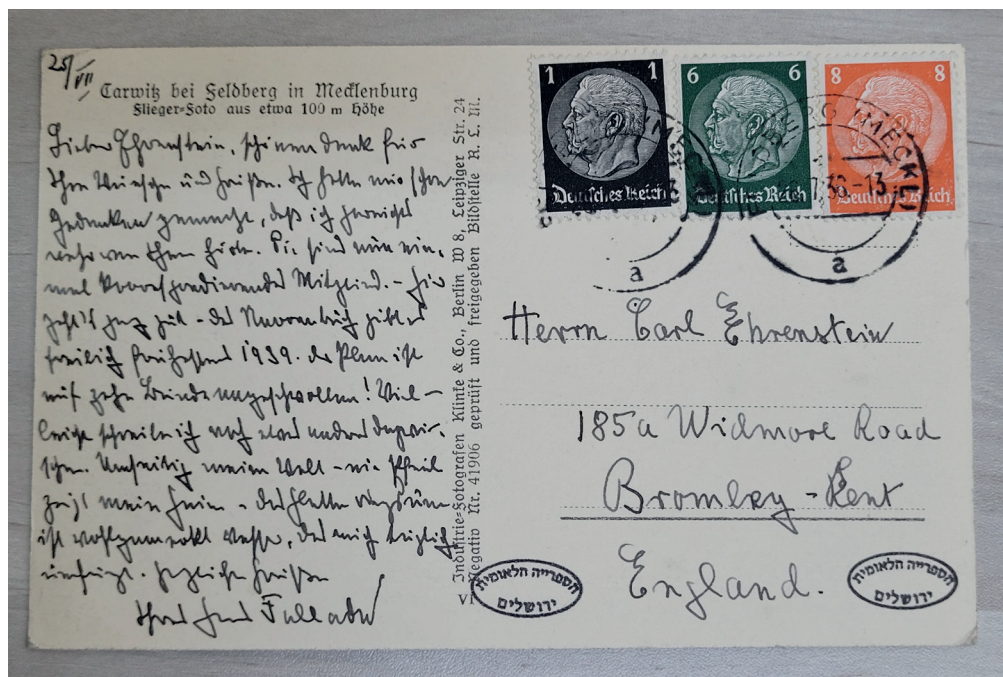 25/VII
Carwitz bei Feldberg in Mecklenburg
Flieger-Foto aus etwa 100 m Höhe
Lieber Ehrenstein, schönen Dank für
Ihre Wünsche und Grüße. Ich hatte mir schon
Gedanken gemacht, daß ich garnichts
mehr von Ihnen hörte. Sie sind nun ein-
mal korrespondierendes Mitglied. – Hier
geht's ganz gut – das
freilich frühestens 1939. der Plan ist
auf zehn Bände angeschwollen! Viel-
leicht schreibe ich noch etwas andres dazwi-
schen. Umseitig meine Welt – ein Pfeil
zeigt mein Heim – das Helle ringsum
ist Wasser, das mich
umfängt. Herzliche Grüße
Ihres Hans Fallada
Industrie-Fotografen Klinke & Co., Berlin W 8, Leipziger Str. 24
Negativ Nr. 41906 geprüft und freigegeben Bildstelle R. L. M.
1 1
Deutsches Reich
6 6
Deutsches Reich
8 8
Deutsches Reich
(MECKL)
a
a
Herrn Carl Ehrenstein
185a Widmore Road
Bromley - Kent
England.
הספרייה הלאומית
ירושלים
הספרייה הלאומית
ירושלים